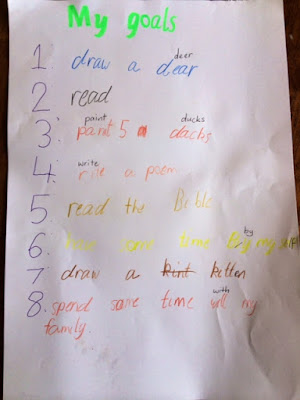 My goals
deer
1. draw a dear
2 read
paint ducks
3. pant 5 dacks
write
4. rite a poem
5. read the Bible
by
6. have some time by my self
7 draw a kint kitten
with
8. spend some time will my
family.